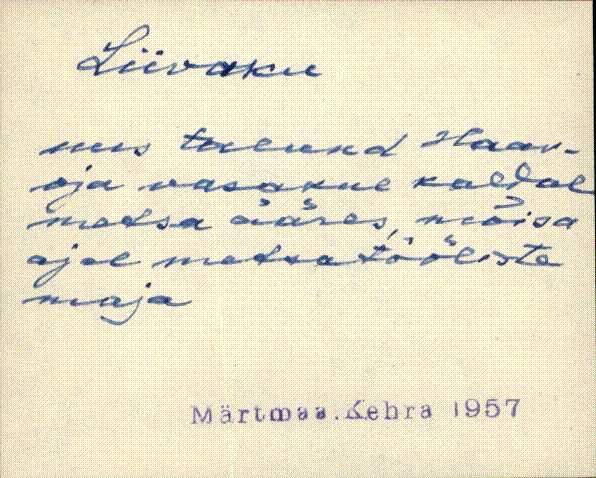 Liivaku
uus talund Haav-
oja vasakul kaldal
metsa ääres, mõisa
ajal metsatööliste
maja
Märtmaa. Kehra 1957